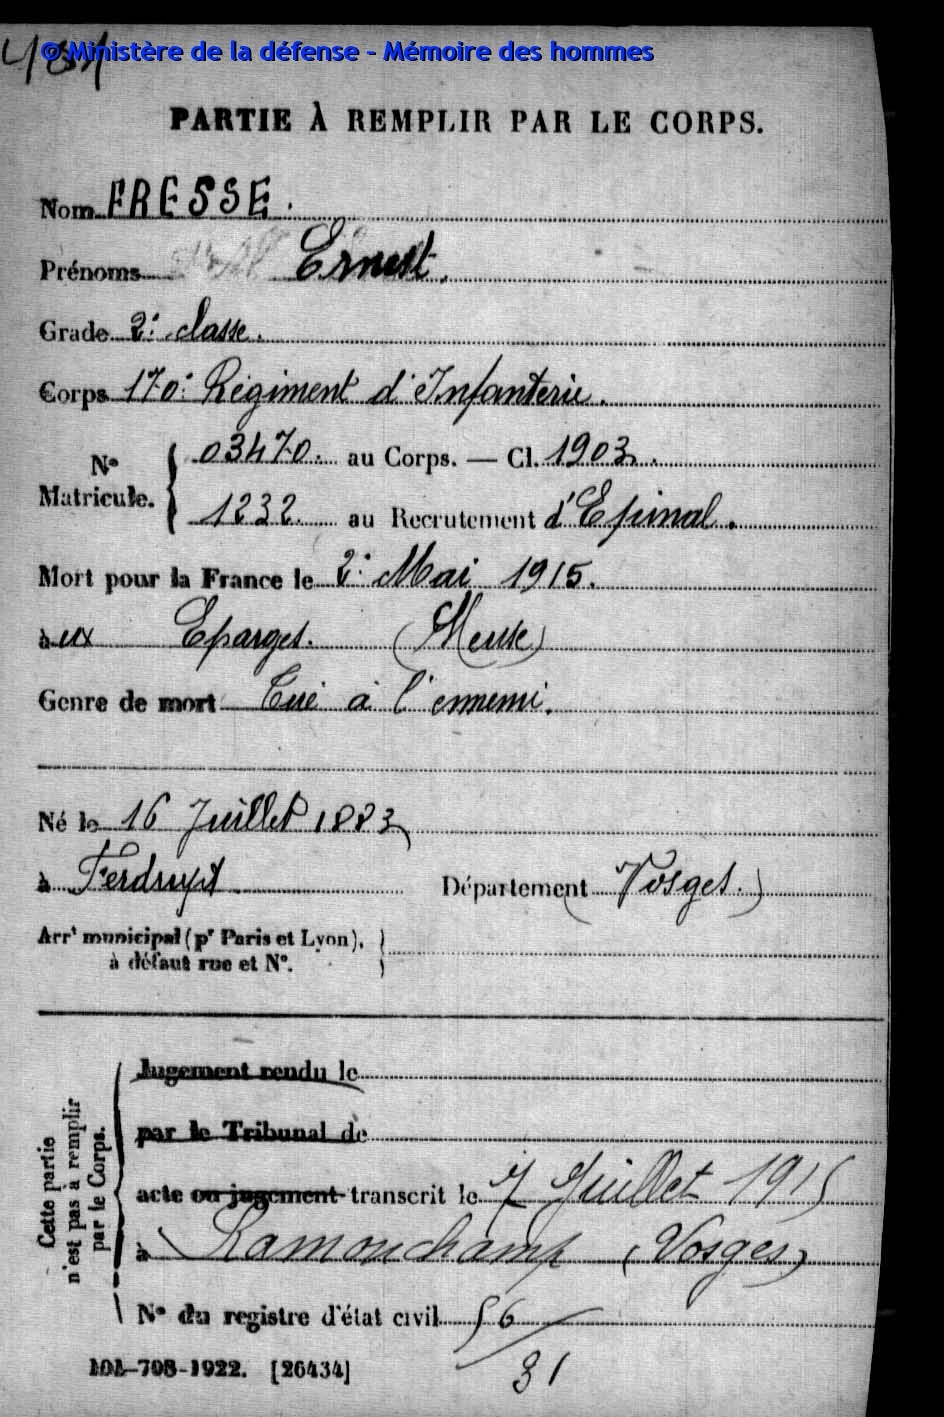 © Ministère de la défense - Mémoire des hommes
PARTIE À REMPLIR PAR LE CORPS.
Nom FRESSE.
Prénoms Ernest.
Grade 2e classe.
Corps 170e Régiment d'Infanterie.
No Matricule. { 03470. au Corps. — Cl. 1903.
1232. au Recrutement d'Epinal.
Mort pour la France le 2e Mai 1915.
aux Eparges. (Meuse)
Genre de mort Tué à l'ennemi.
Né le 16 Juillet 1883
à Ferdrupt Département (Vosges.)
Arrt municipal (pr Paris et Lyon), }
à défaut rue et No.
Cette partie
n'est pas à remplir
par le Corps.
Jugement rendu le
par le Tribunal de
acte ou jugement transcrit le 7 Juillet 1915
à Ramonchamp (Vosges)
No du registre d'état civil 56/31
101-708-1922. [26434]